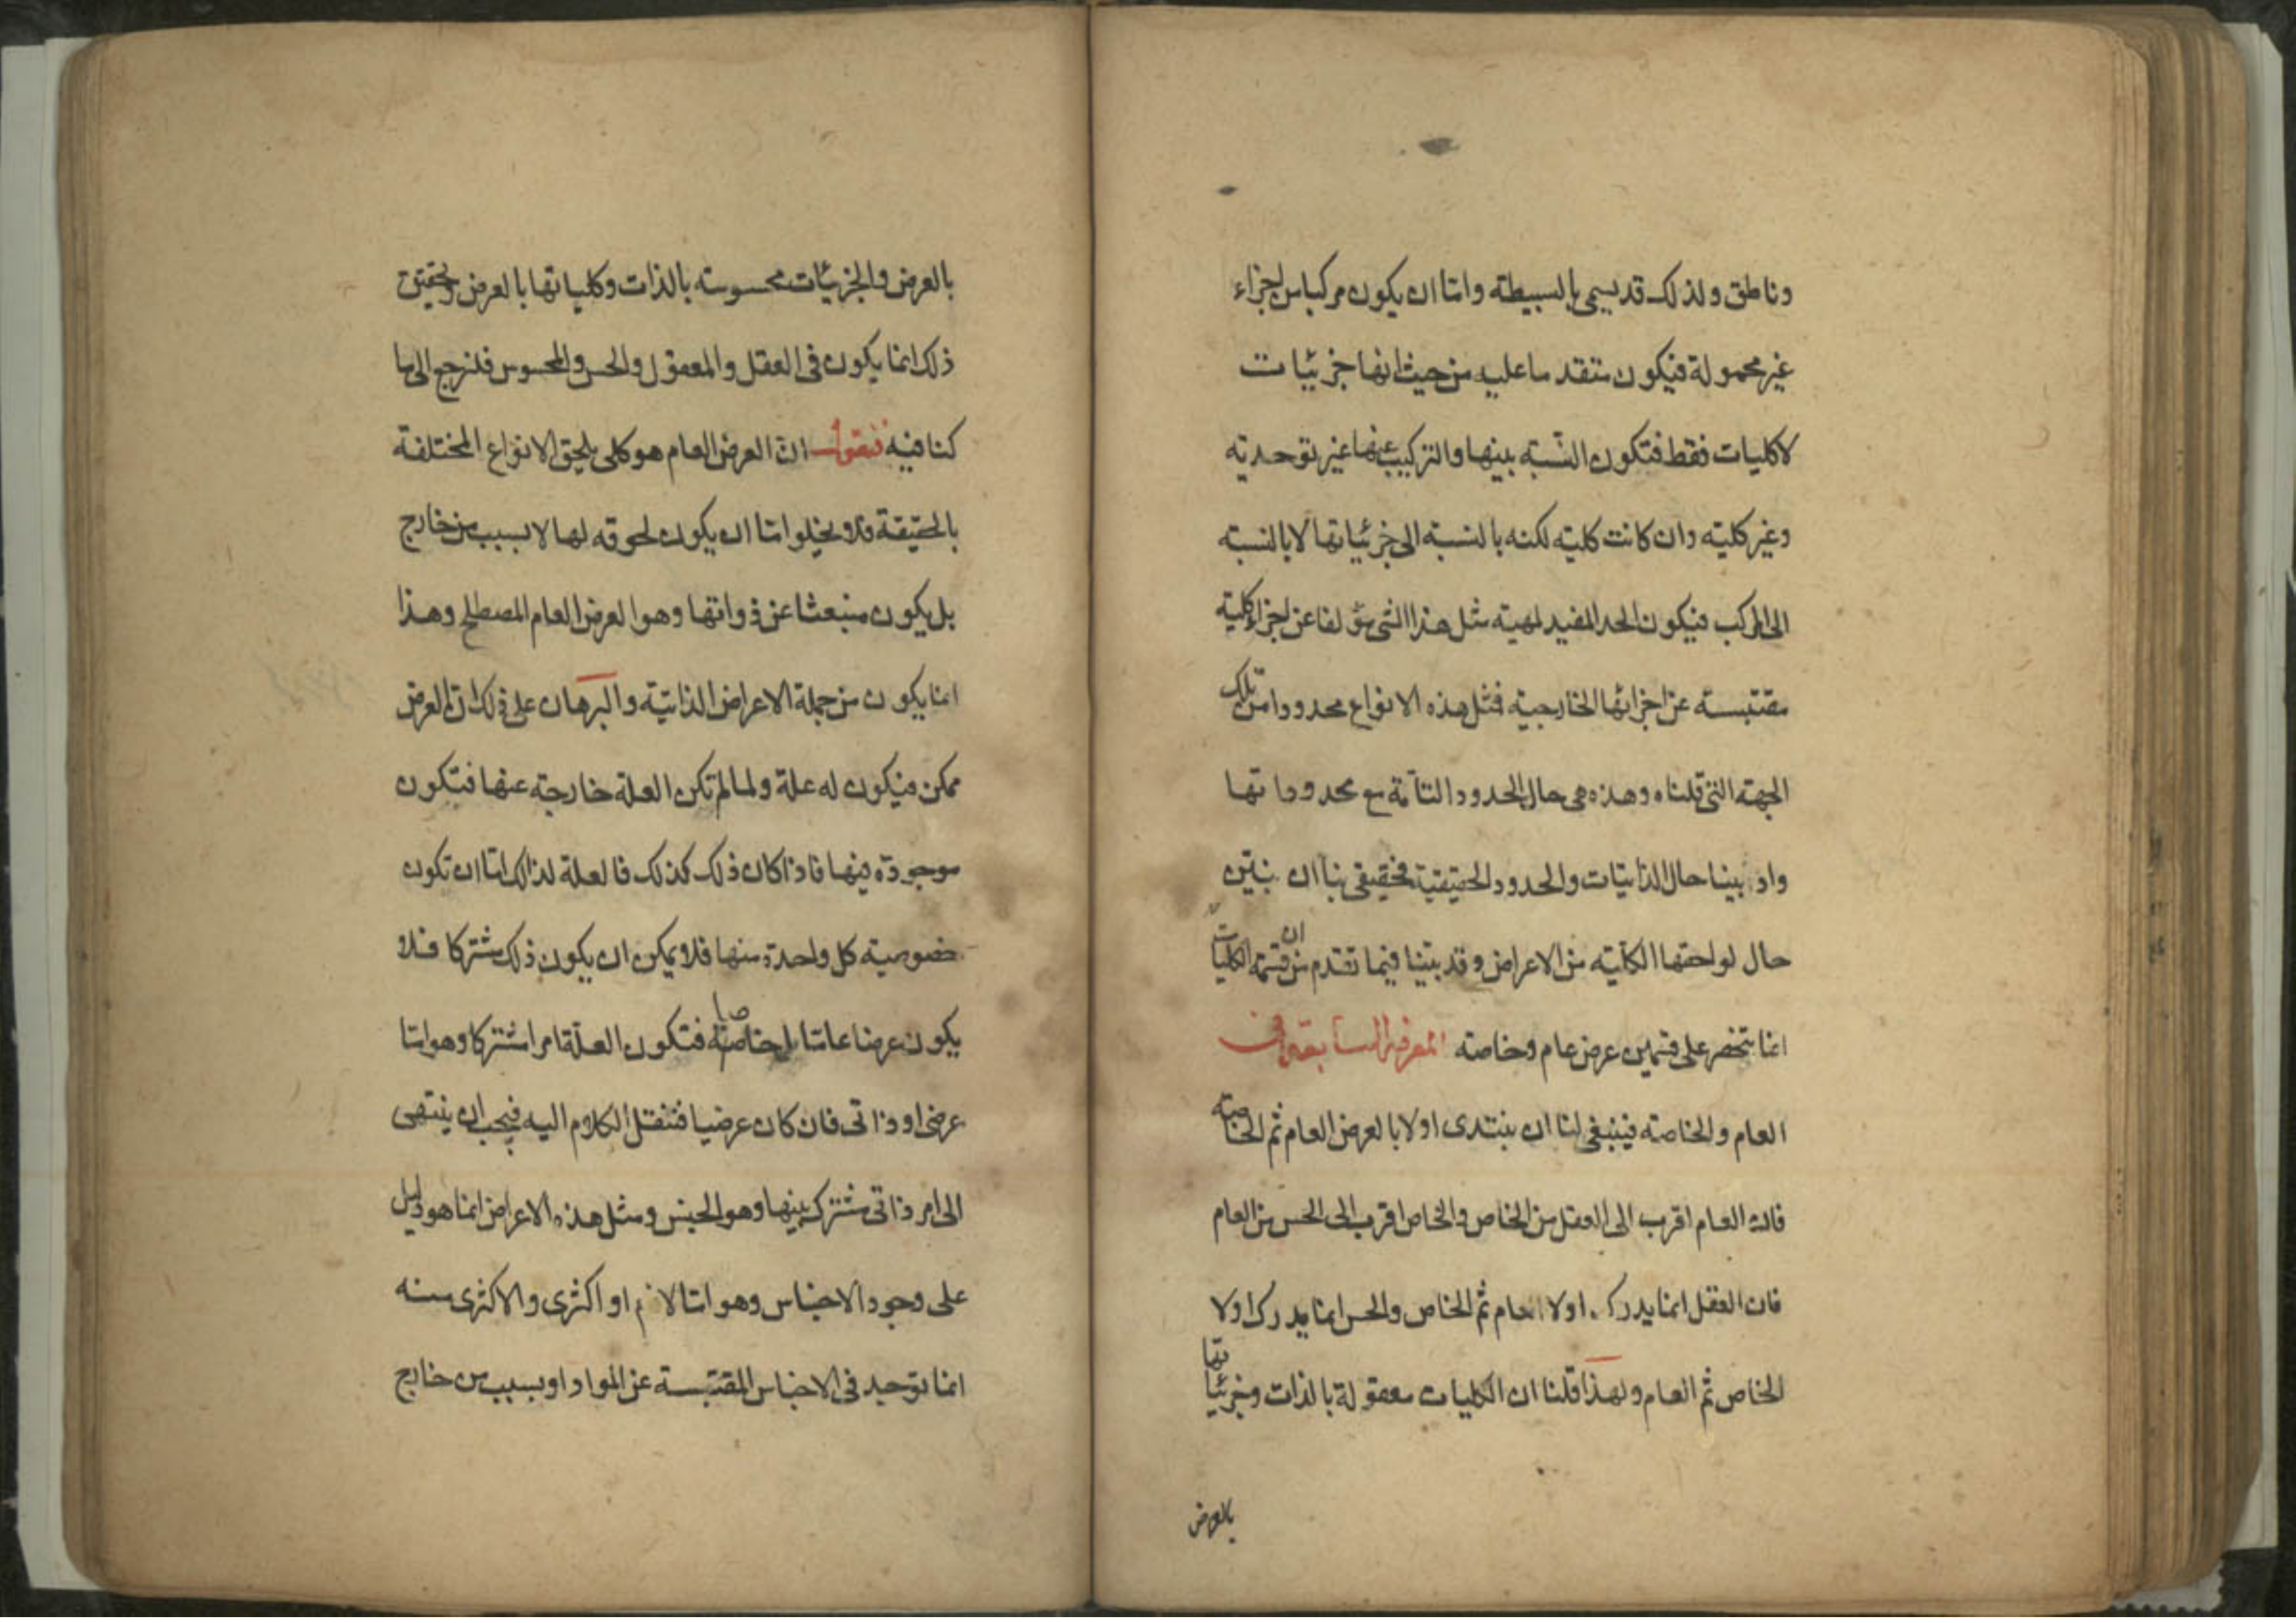 وناطق ولذلك قد يسمى بالبسيطة واما ان يكون مركبا من اجزاء
غير محمولة فيكون متقدما عليه من حيث انها جزئيات
لا كليات فقط فتكون النسبة بينها والتركيب عنها غير توحدية
وغير كلية وان كانت كلية لكنه بالنسبة الى جزئياتها لا بالنسبة
الى المركب فيكون الحد المفيد لمهية مثل هذا الشئ مؤلفا عن اجزاء كلية
مقتبسة عن اجزائها الخارجية فمثل هذه الانواع محدودا من تلك
الجهة التي قلناه وهذه هي حال الحدود التامة مع محدوداتها
واذ بينا حال الذاتيات والحدود الحقيقية فحقيق بنا ان نبين
حال لواحقها الكلية من الاعراض وقد بينا فيما تقدم ان من قسمة الكليات
انما تنحصر على قسمين عرض عام وخاصة المعرفة السابقة في
العام والخاصة فينبغي لنا ان نبتدى اولا بالعرض العام ثم الخاصة
فان العام اقرب الى العقل من الخاص والخاص اقرب الى الحس من العام
فان العقل انما يدرك اولا العام ثم الخاص والحس انما يدرك اولا
الخاص ثم العام ولهذا قلنا ان الكليات معقولة بالذات وجزئياتها
بالعرض
بالعرض والجزئيات محسوسة بالذات وكلياتها بالعرض وتحقيق
ذلك انما يكون في العقل والمعقول والحس والمحسوس فلنرجع الى ما
كنا فيه فنقول ان العرض العام هو كلى يلحق الانواع المختلفة
بالحقيقة فلا يخلو اما ان يكون لحوقه لها لا بسبب من خارج
بل يكون منبعثا عن ذواتها وهو العرض العام المصطلح وهذا
انما يكون من جملة الاعراض الذاتية والبرهان على ذلك ان العرض
ممكن فيكون له علة ولما لم تكن العلة خارجة عنها فتكون
موجودة فيها فاذا كان ذلك كذلك فالعلة لذلك اما ان تكون
خصوصية كل واحدة منها فلا يمكن ان يكون ذلك مشتركا فلا
يكون عرضا عاما بل خاصا فتكون العلة امرا مشتركا وهو اما
عرضى او ذاتى فان كان عرضيا فننقل الكلام اليه فيجب ان ينتهى
الى امر ذاتى مشترك بينها وهو الجنس ومثل هذه الاعراض انما هو دليل
على وجود الاجناس وهو اما لازم او اكثرى والاكثرى منه
انما توجد في الاجناس المقتبسة عن المواد او بسبب من خارج